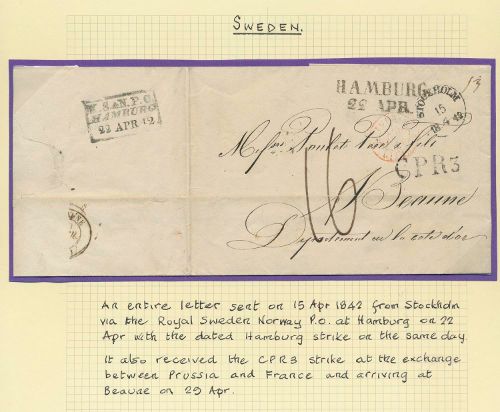 SWEDEN.
HAMBURG
22 APR.
STOCKHOLM
15
1842
K.S.&N.P.C
HAMBURG
22 APR 42
CPR3
16
Beaune
Département de la cote d'or
An entire letter sent on 15 Apr 1842 from Stockholm
via the Royal Sweden Norway P.O. at Hamburg on 22
Apr with the dated Hamburg strike on the same day.
It also received the CPR3 strike at the exchange
between Prussia and France and arriving at
Beaune on 29 Apr.